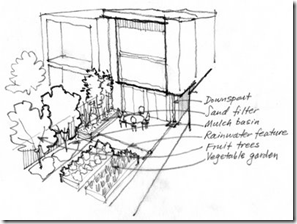 Downspout
Sand filter
Mulch basin
Rainwater feature
Fruit trees
Vegetable garden